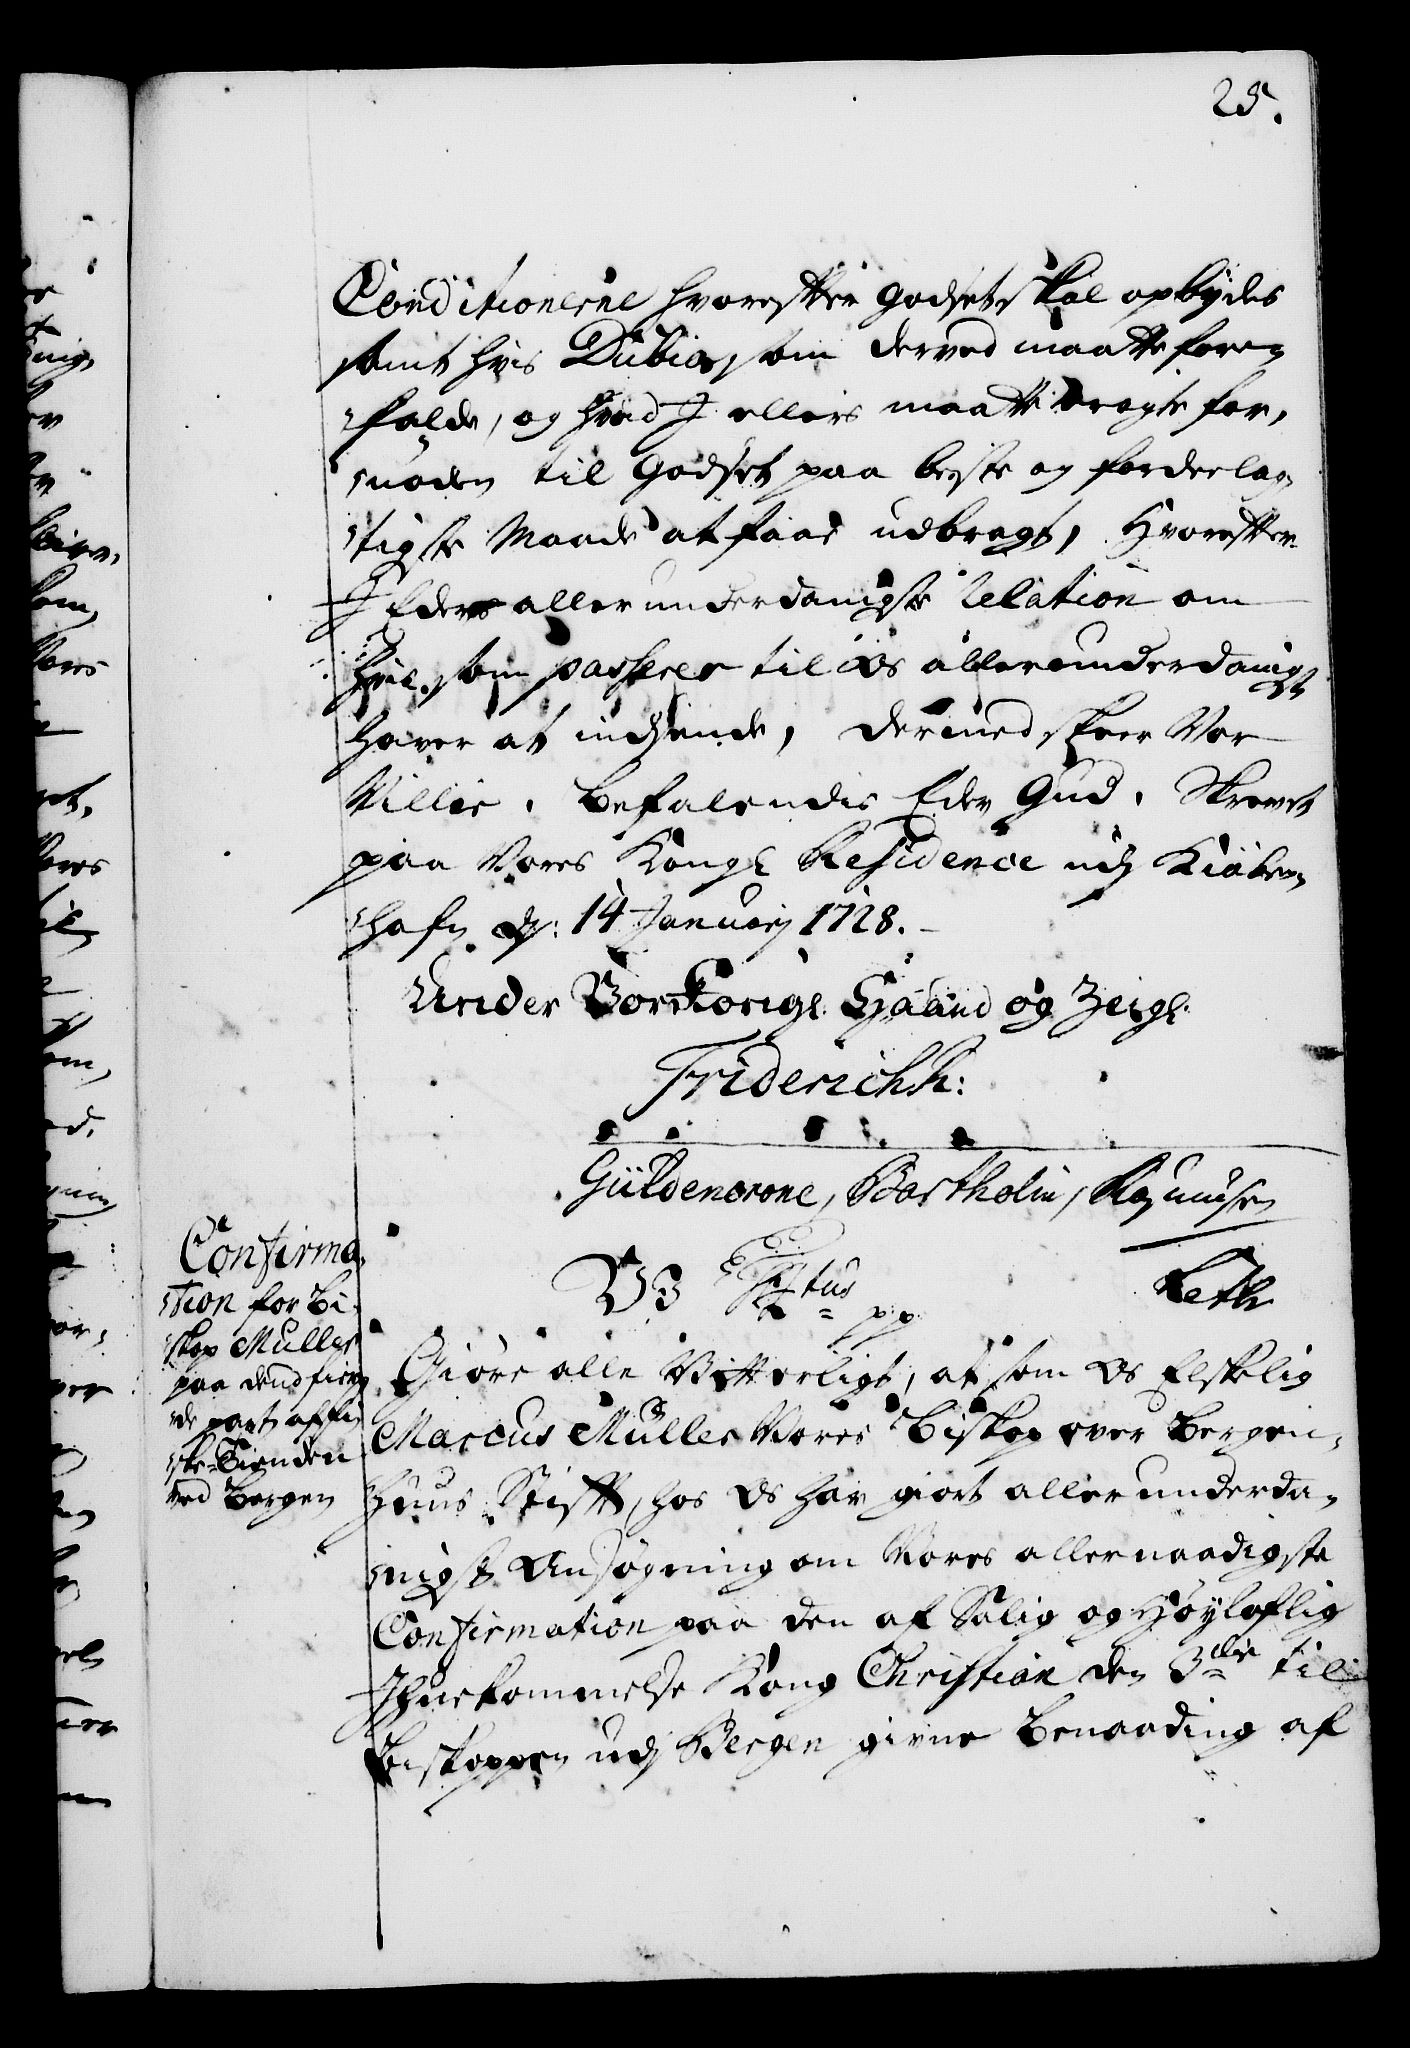 25.
Conditionerne hvorefter Godset skal opbydes
samt hvis Dubia, som derved maatte fore-
falde, og hvad I ellers maatte eragte for-
nøden til Godset paa beste og fordeelag-
tigste Maade at faae udbragt, Hvorefter
I Eders allerunderdanigste Relation om
hvis som passerer til Os allerunderdanigst
haver at indsende, dermed skeer Vor
Villie. Befalendis Eder Gud. Skrevet
paa Vores Kongl Residence udj Kiøben-
hafn d: 14 January 1728.
Under Vor Kongl. Haand og Zeigl.
Friderich R:
Güldencrone, Bartholin, Rasmusen
Confirma-
tion for Bi-
skop Muller
paa dend fier-
de part af Fi-
ske-Tienden
ved Bergen
V3 Titus pp
Leth
Giøre alle Vitterligt, at som Os Elskelig
Marcus Müller Vores Biskop over Bergen-
huus Stift, hos Os har giort allerunderda-
nigst Ansøgning om Vores allernaadigste
Confirmation paa den af Salig og Høylaflig
Ihuekommelse Kong Christian den 3die til
Biskoppen udj Bergen givne Benaading af